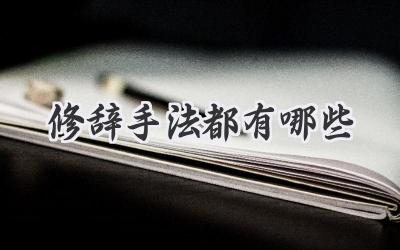 修辞手法都有哪些